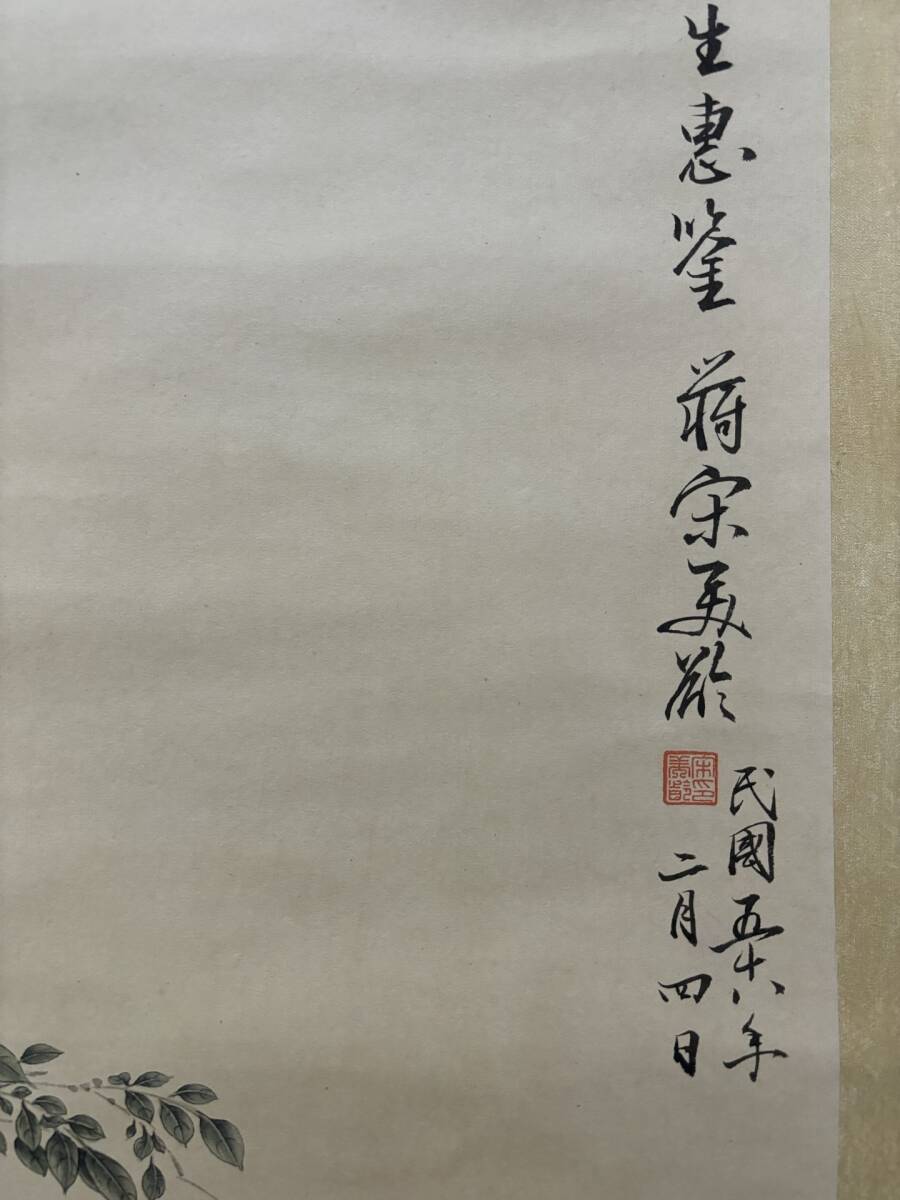 生惠鑒 蔣宋美齡
宋印
美齡
民國五十八年
二月四日